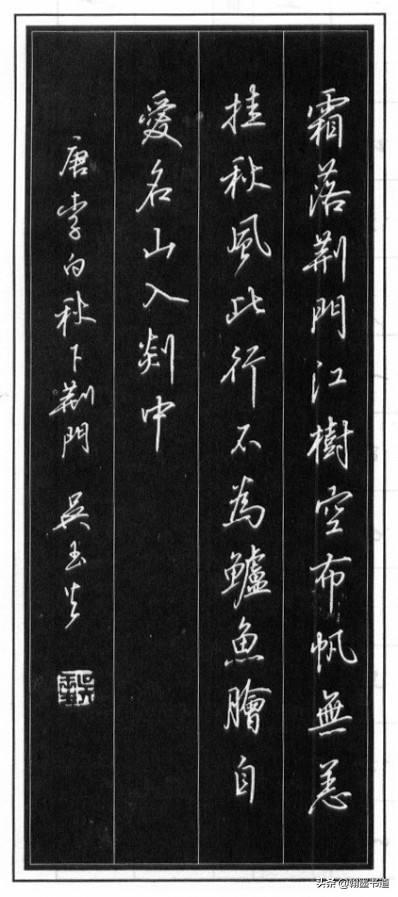 霜落荆門江樹空布帆無恙
挂秋風此行不為鱸魚膾自
愛名山入剡中
唐李白秋下荆門 吳玉生
头条 @翰墨书道